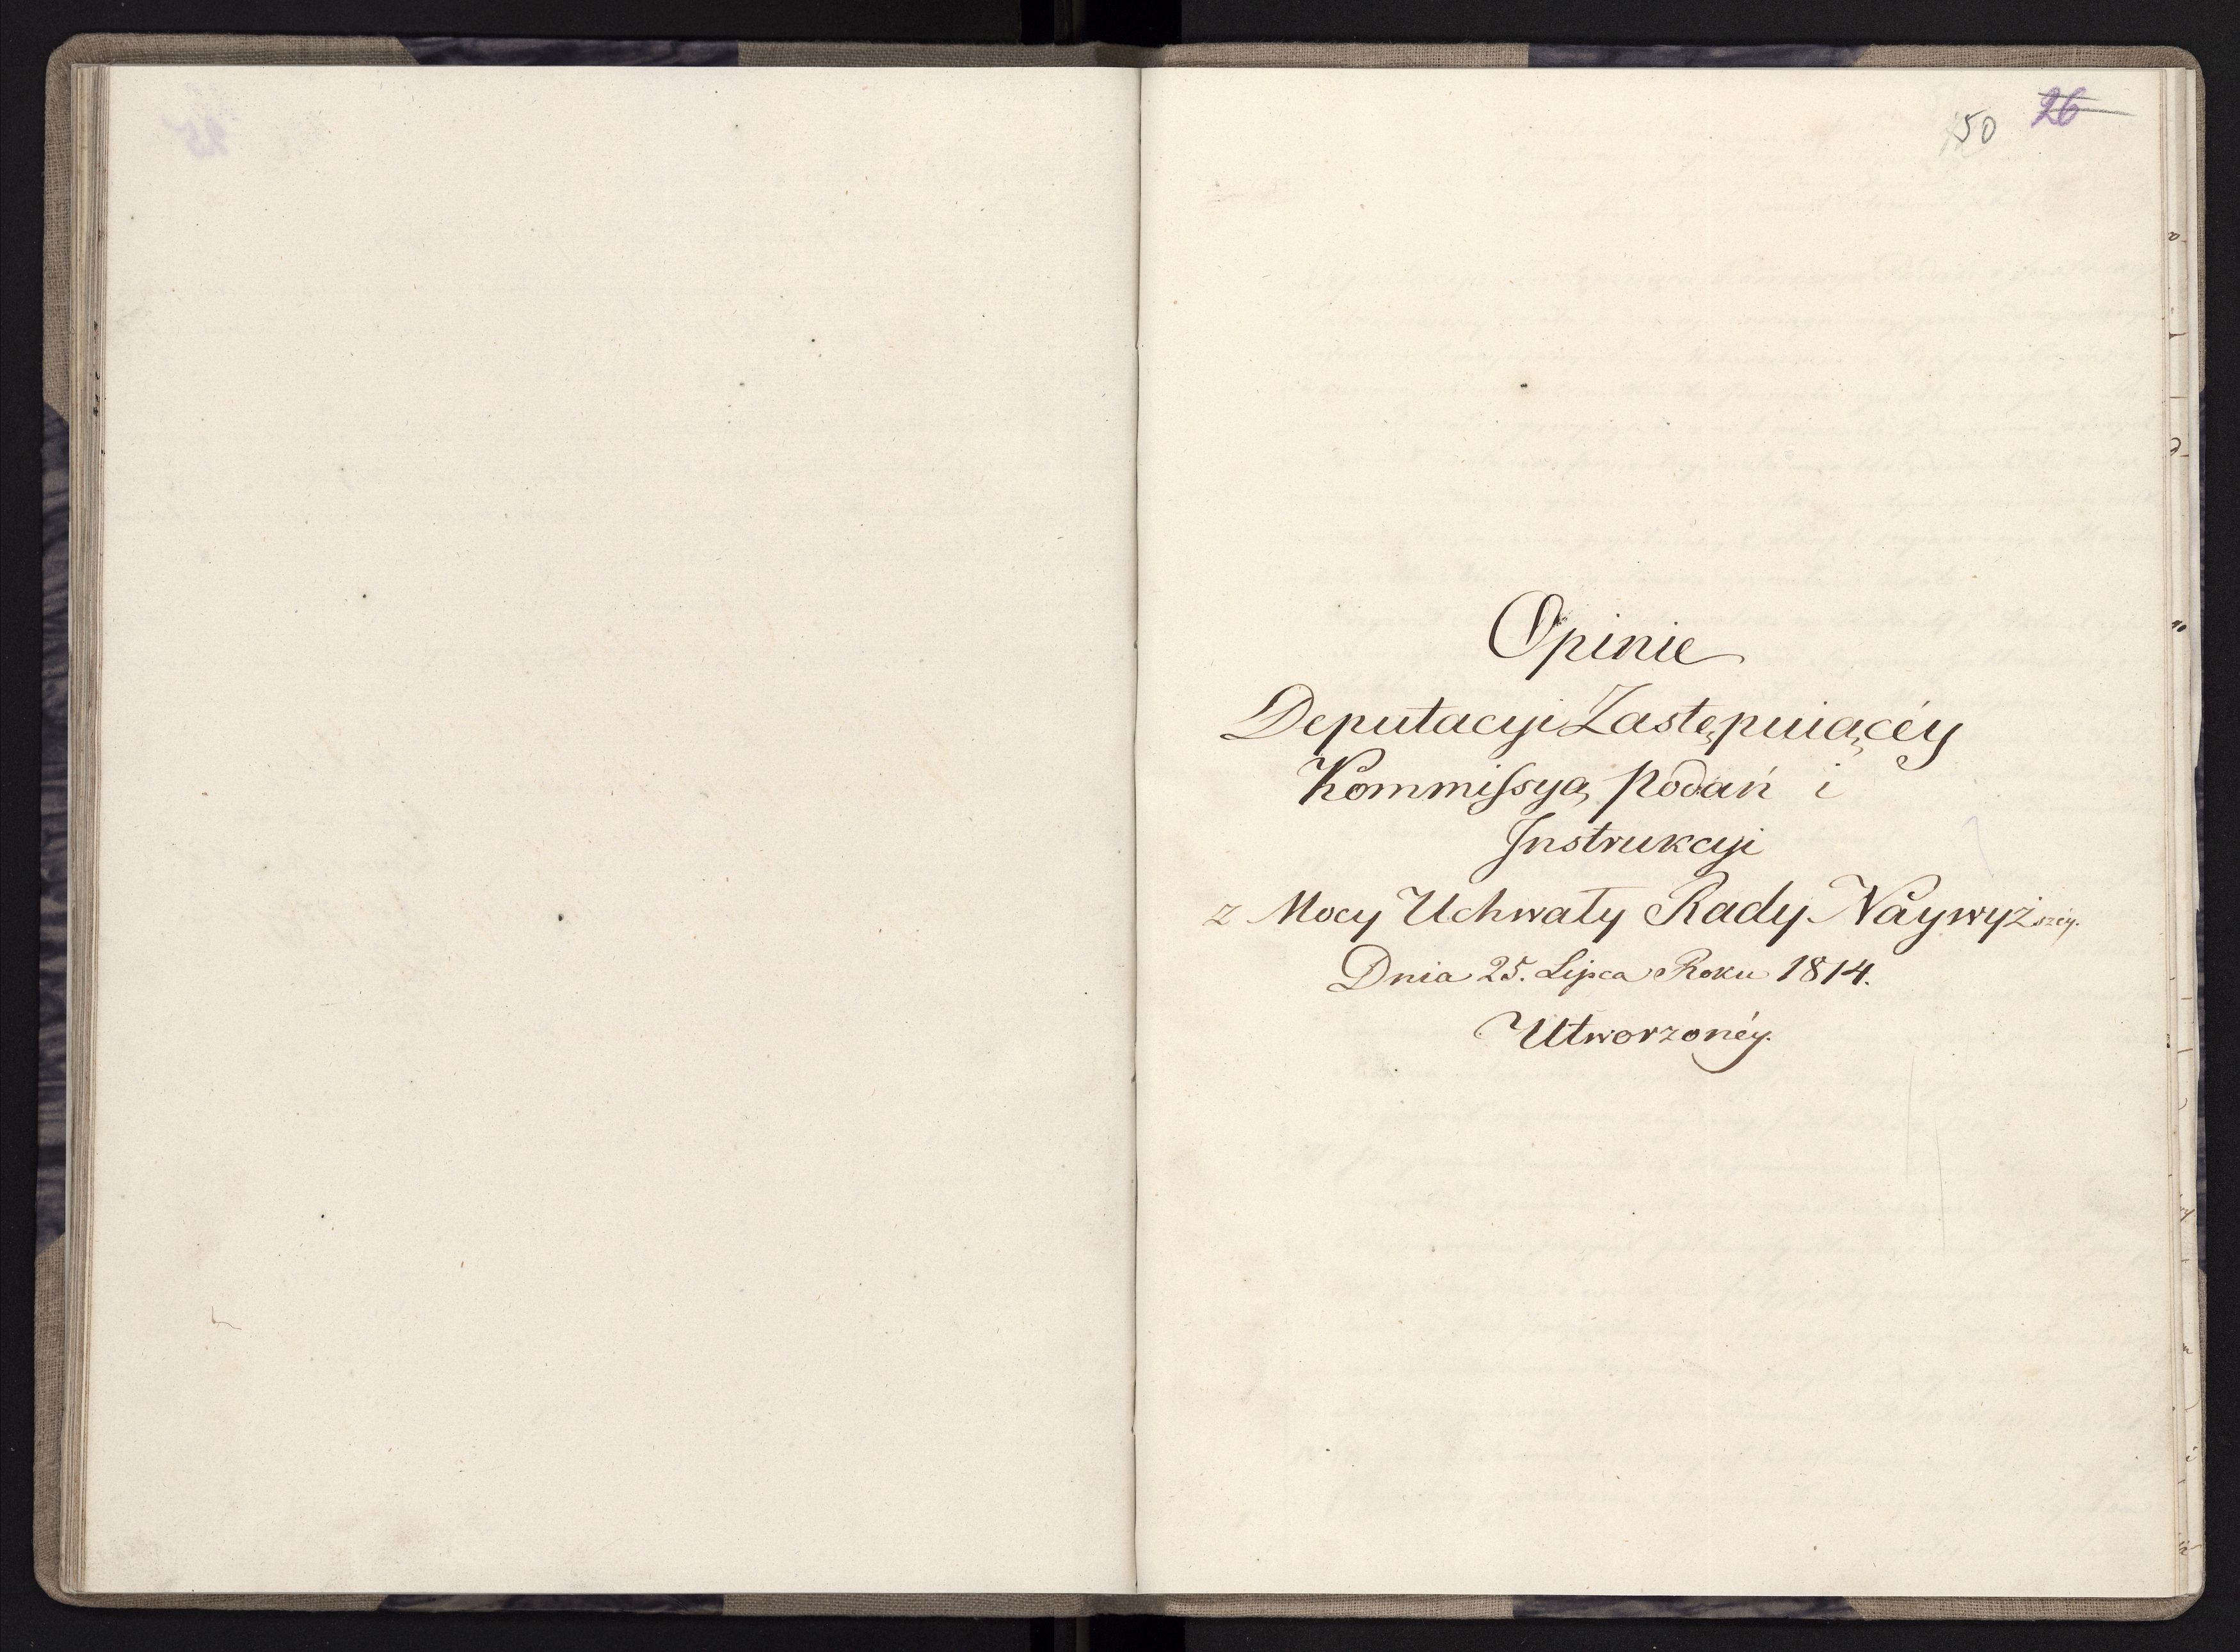 50 26
Opinie
Deputacyi Zastępuiącéy
Kommissyą Podań i
Instrukcyi
z Mocy Uchwały Rady Náywyższéy.
Dnia 25. Lipca Roku 1814.
Utworzonéy.